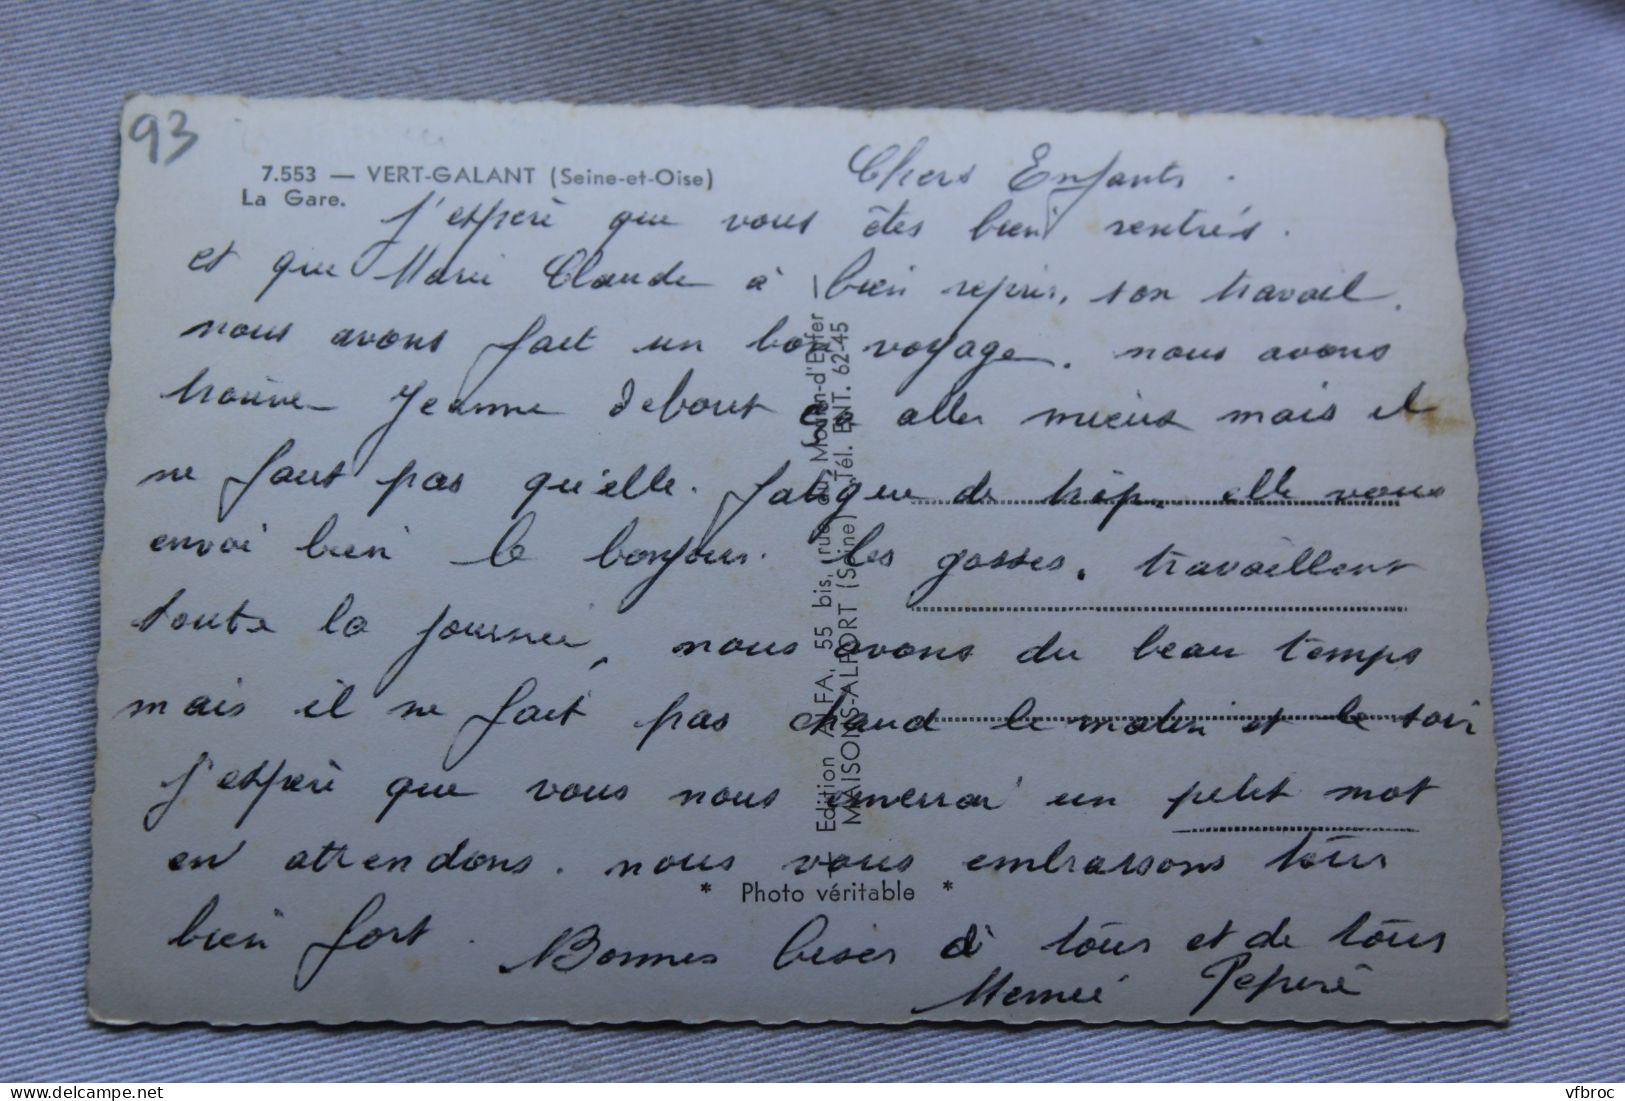 93
7.553 — VERT-GALANT (Seine-et-Oise)
La Gare.
Chers Enfants.
J'esperè que vous êtes bien rentrés.
et que Marie Claude à bien repris, son travail.
nous avons fait un bon voyage. nous avons
trouvé Jeanne debout ça aller mieux mais il
ne faut pas qu'elle. fatigue de trop. elle vous
envoi bien le bonjour. les gosses, travaillent
toute la journée, nous avons du beau temps
mais il ne fait pas chaud le matin et le soir
J'esperè que vous nous enverrai un petit mot
en attendons. nous vous embrassons tous
bien fort. Bonnes bises à tous et de tous
Memée Peperé
Edition ALFA, 55 bis, rue du Moulin-d'Enfer
MAISONS-ALFORT (Seine) Tél. ENT. 62-45
* Photo véritable *
delcampe.net
vfbroc